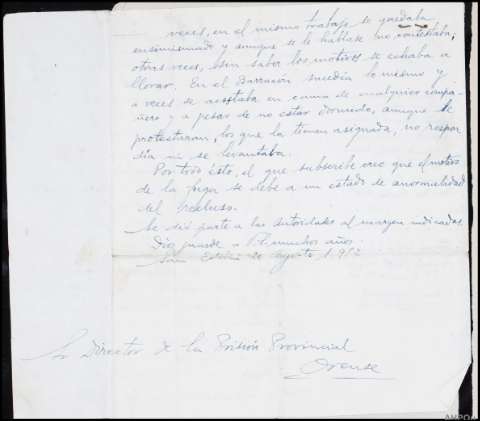 veces, en el mismo trabajo se quedaba
ensimismado y aunque se le hablase no contestaba;
otras veces, sin saber los motivos se echaba a
llorar. En el Barracón sucedía lo mismo y
a veces se acostaba en cama de cualquier compa-
ñero y a pesar de no estar dormido, aunque le
protestaran, los que la tenían asignada, no respon-
día ni se levantaba.
Por todo ésto, el que subscribe cree que el motivo
de la fuga se debe a un estado de anormalidad
del recluso.
Se dió parte a las autoridades al margen indicadas
Dios guarde a muchos años.
San Esteban Agosto
Sr Director de la Prisión Provincial
Orense